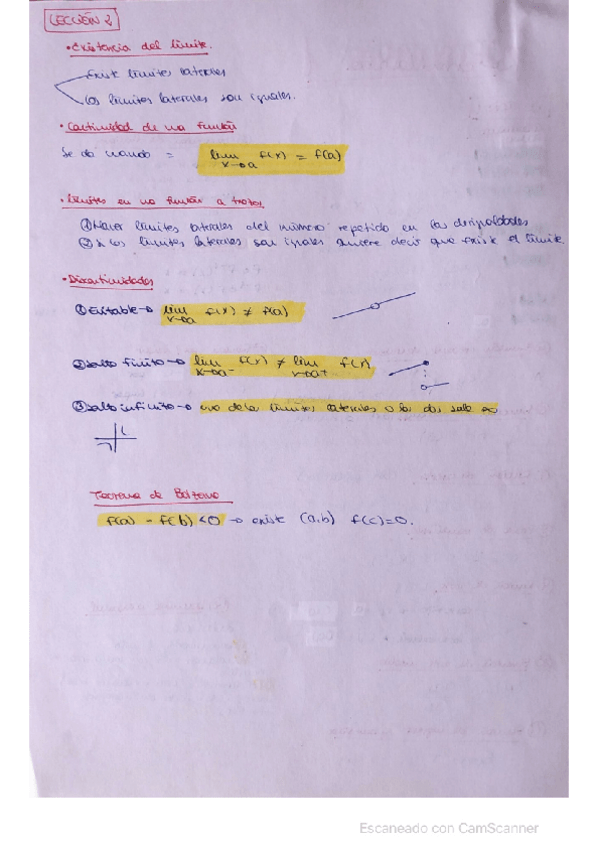 LECCIÓN 2
• Existencia del límite.
Existe límites laterales
Los límites laterales son iguales.
• Continuidad de una función
Se da cuando = lim f(x) = f(a)
x→a
• Límites en una función a trozos.
① Hacer límites laterales del número repetido en las desigualdades
② Si los límites laterales son iguales quiere decir que existe el límite.
• Discontinuidades
① Evitable → lim f(x) ≠ f(a)
x→a
② Salto finito → lim f(x) ≠ lim f(x)
x→a- x→a+
③ Salto infinito → uno de los límites laterales o los dos sale ∞
Teorema de Bolzano
f(a) - f(b) < 0 → existe (a,b) f(c)=0.
Escaneado con CamScanner